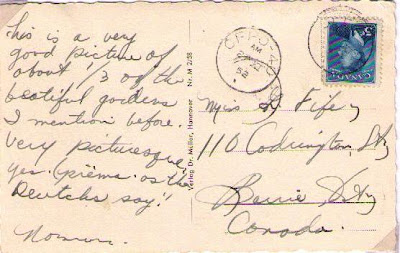 This is a very
good picture of
about 1/3 of the
beatiful gardens
I mention before.
Very picturesque
yes. (priema as the
Deutchs say.")
Norman.
Verlag Dr. Müller, Hannover Nr. M 2/28
CFPO
AM
52
CANADA
5
Fife
110 Codrington St
Barrie Ont
Canada.